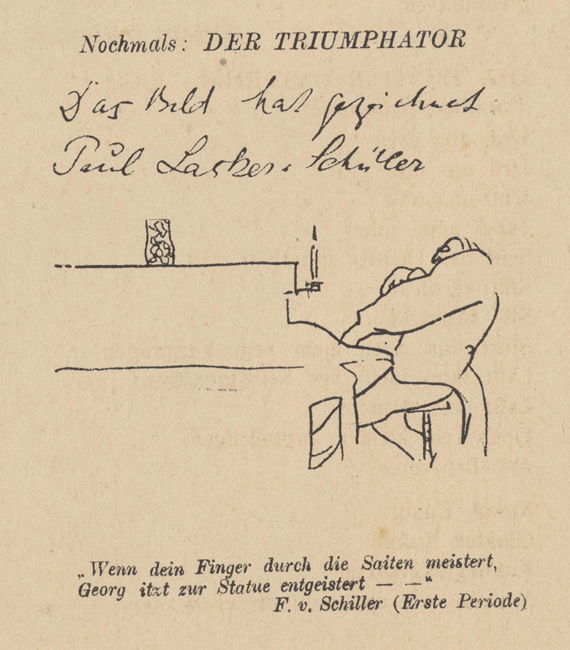 Nochmals: DER TRIUMPHATOR
Das Bild hat gezeichnet
Paul Lasker-Schüler
„Wenn dein Finger durch die Saiten meistert,
Georg itzt zur Statue entgeistert — —“
F. v. Schiller (Erste Periode)